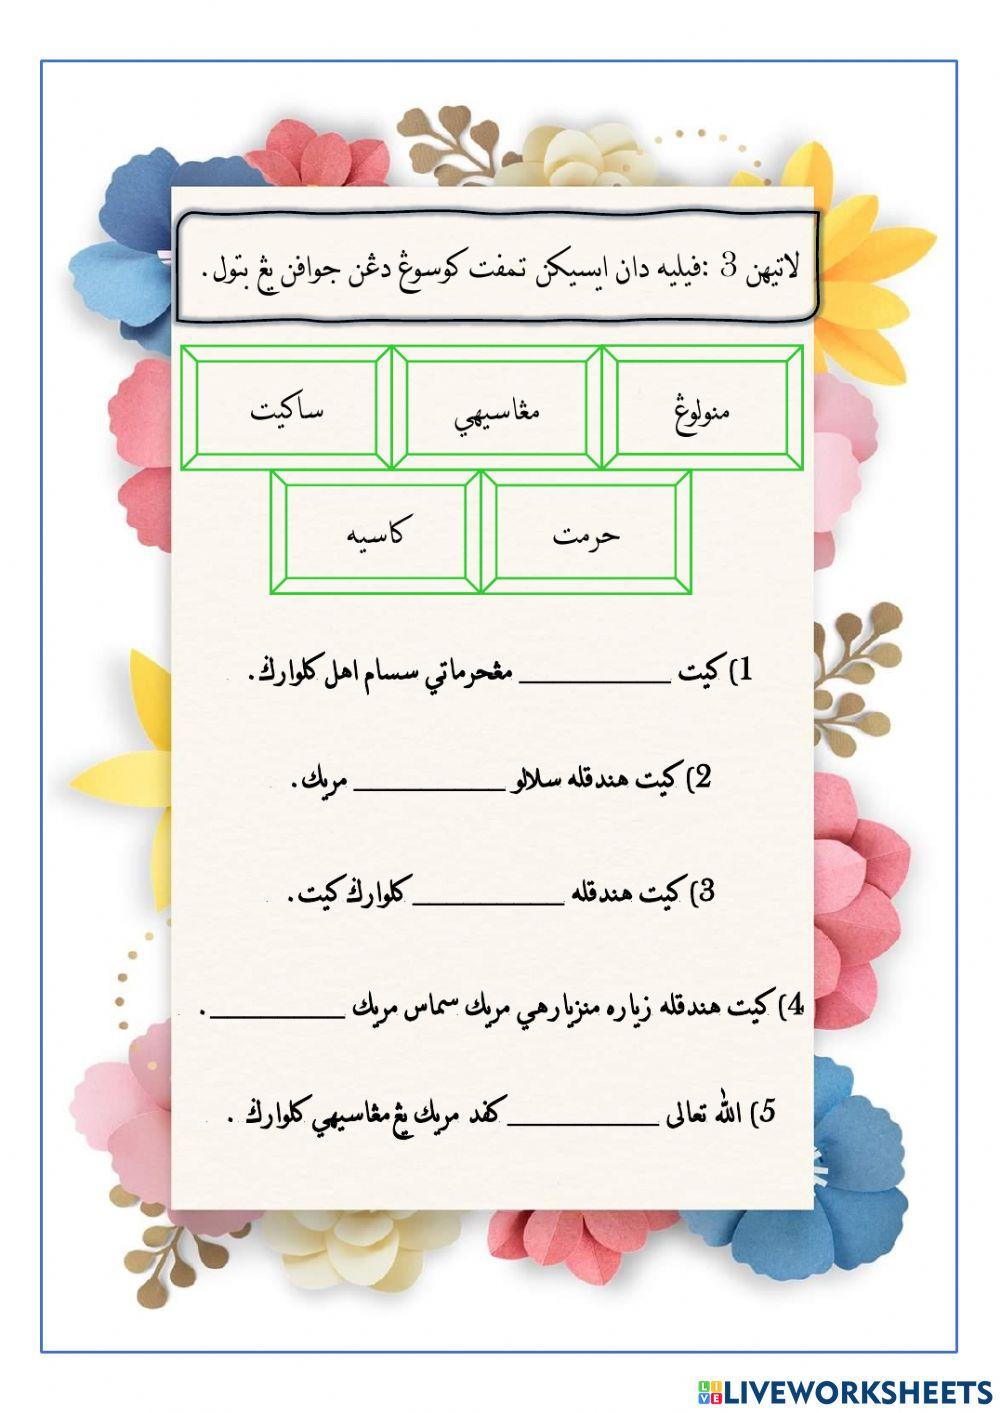 لاتيهن 3 :ڤيليه دان ايسيكن تمڤت كوسوڠ دڠن جواڤن يڠ بتول.
منولوڠ
مڠاسيهي
ساكيت
حرمت
كاسيه
1) كيت __________ مڠحرماتي سسام اهل كلوارݢ.
2) كيت هندقله سلالو __________ مريك.
3) كيت هندقله __________ كلوارݢ كيت.
4) كيت هندقله زياره منزيارهي مريك سماس مريك __________.
5) الله تعالى __________ كڤد مريك يڠ مڠاسيهي كلوارݢ .
LIVEWORKSHEETS